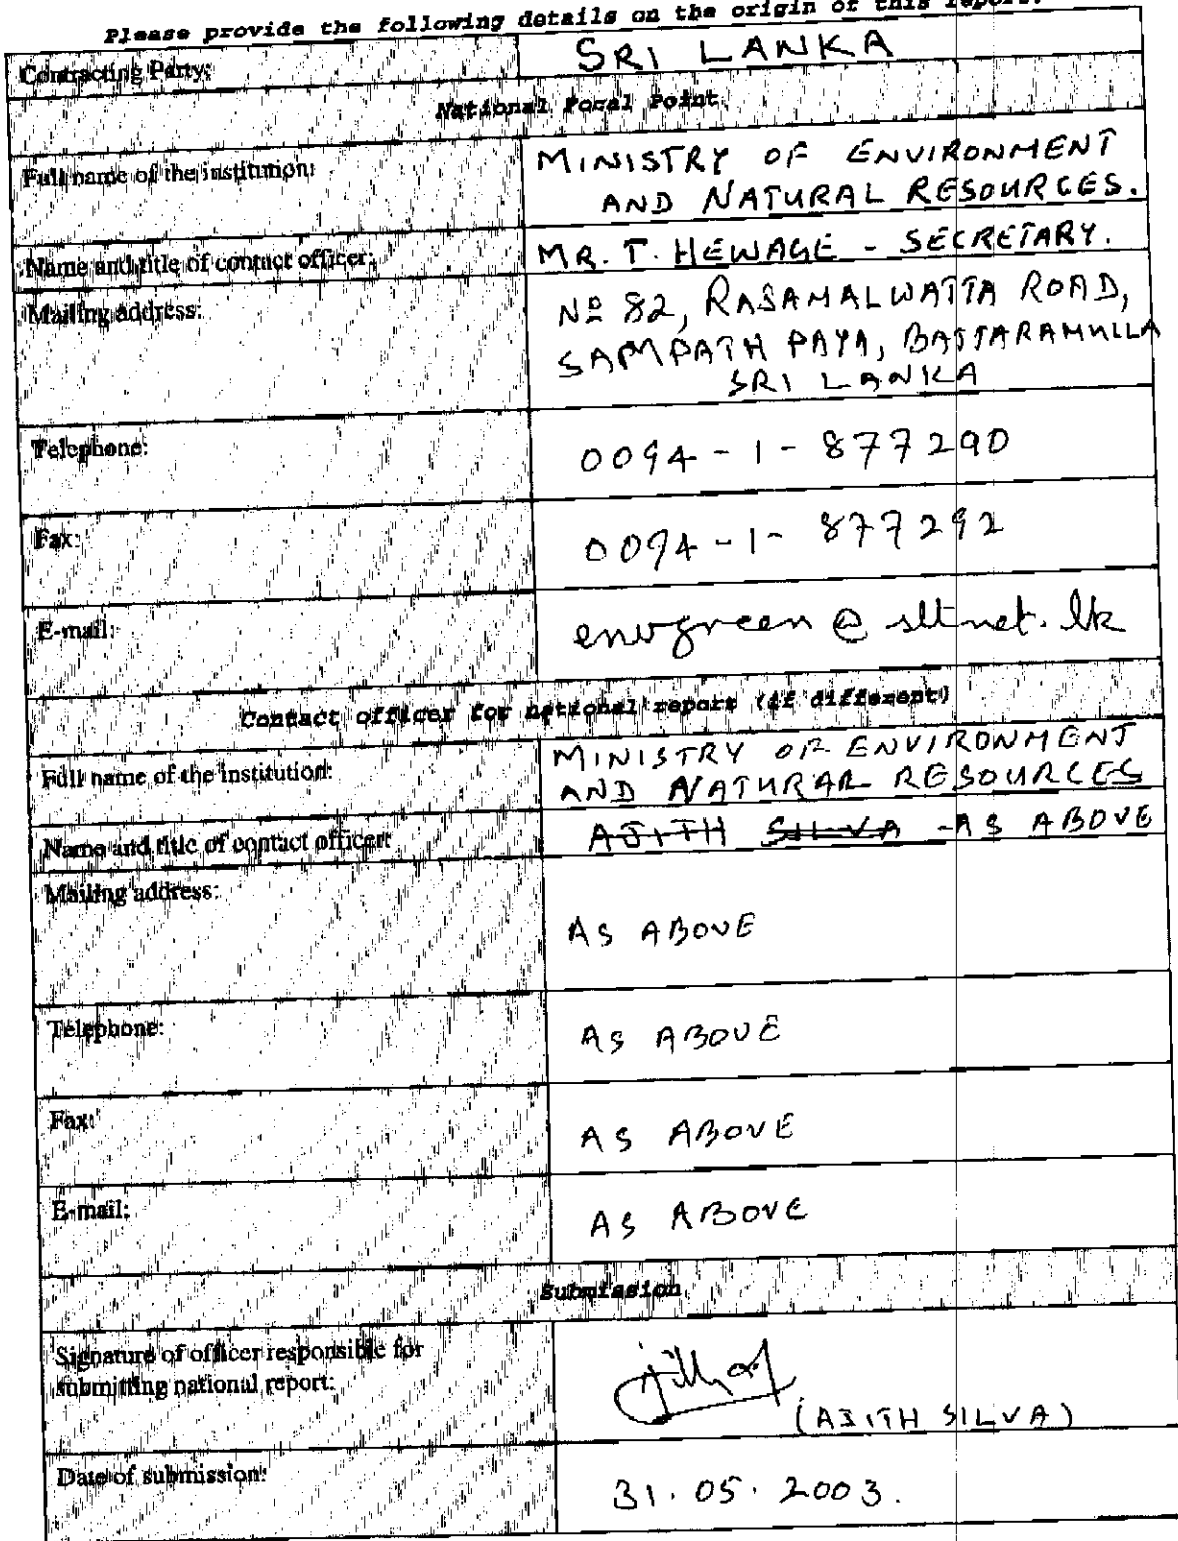 Please provide the following details on the origin of this report.
Contracting Party: SRI LANKA
National Focal Point
Full name of the institution: MINISTRY OF ENVIRONMENT
AND NATURAL RESOURCES.
Name and title of contact officer: MR. T. HEWAGE - SECRETARY.
Mailing address: No 82, RAJAMALWATTA ROAD,
SAMPATH PAYA, BATTARAMULLA
SRI LANKA
Telephone: 0094-1-877290
Fax: 0094-1-877292
E-mail: envgreen@sltnet.lk
Contact officer for national report (if different)
Full name of the institution: MINISTRY OF ENVIRONMENT
AND NATURAR RESOURCES
Name and title of contact officer: AJITH SILVA - AS ABOVE
Mailing address: AS ABOVE
Telephone: AS ABOVE
Fax: AS ABOVE
E-mail: AS ABOVE
Submission
Signature of officer responsible for
submitting national report:
(AJITH SILVA)
Date of submission: 31.05.2003.